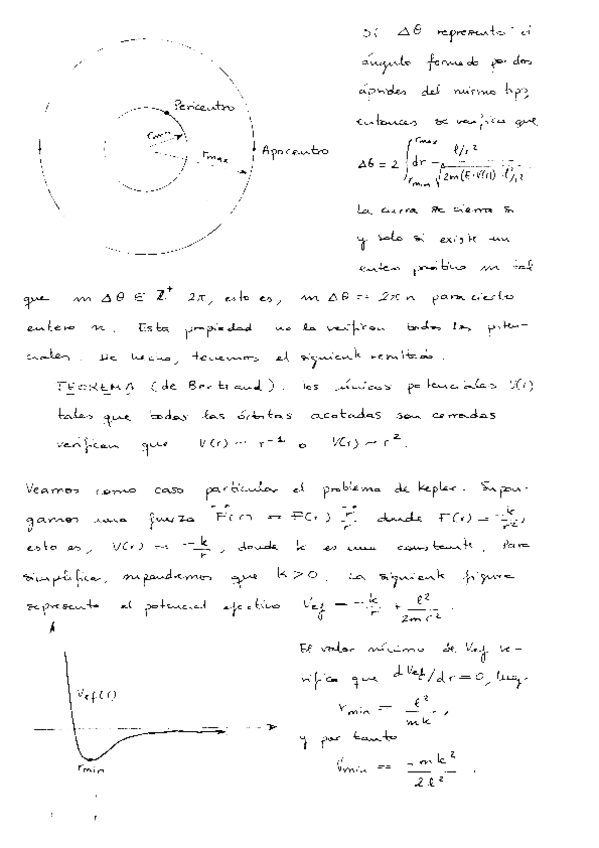 Si Δθ representa el
ángulo formado por dos
ápsides del mismo tipo,
entonces se verifica que
Pericentro
r min
r max
Apocentro
Δθ = 2 ∫_{r min}^{r max} dr (ℓ/r²) / √(2m(E-V(r)) - ℓ²/r²)
La curva se cierra si
y solo si existe un
entero positivo m tal
que m Δθ ∈ ℤ⁺ 2π, esto es, m Δθ = 2π n para cierto
entero n. Esta propiedad no la verifican todos los poten-
ciales. De hecho, tenemos el siguiente resultado.
TEOREMA (de Bertrand). Los únicos potenciales V(r)
tales que todas las órbitas acotadas son cerradas
verifican que V(r) ~ r⁻¹ o V(r) ~ r².
Veamos como caso particular el problema de Kepler. Supon-
gamos una fuerza F(r) = F(r) r/r donde F(r) = -k/r²,
esto es, V(r) = -k/r, donde k es una constante. Para
simplificar, supondremos que k > 0. La siguiente figura
representa el potencial efectivo V_ef = -k/r + ℓ²/2mr².
V_ef(r)
r min
El valor mínimo de V_ef ve-
rifica que dV_ef/dr = 0, luego
r min = ℓ²/mk,
y por tanto
V min = -mk²/2ℓ².